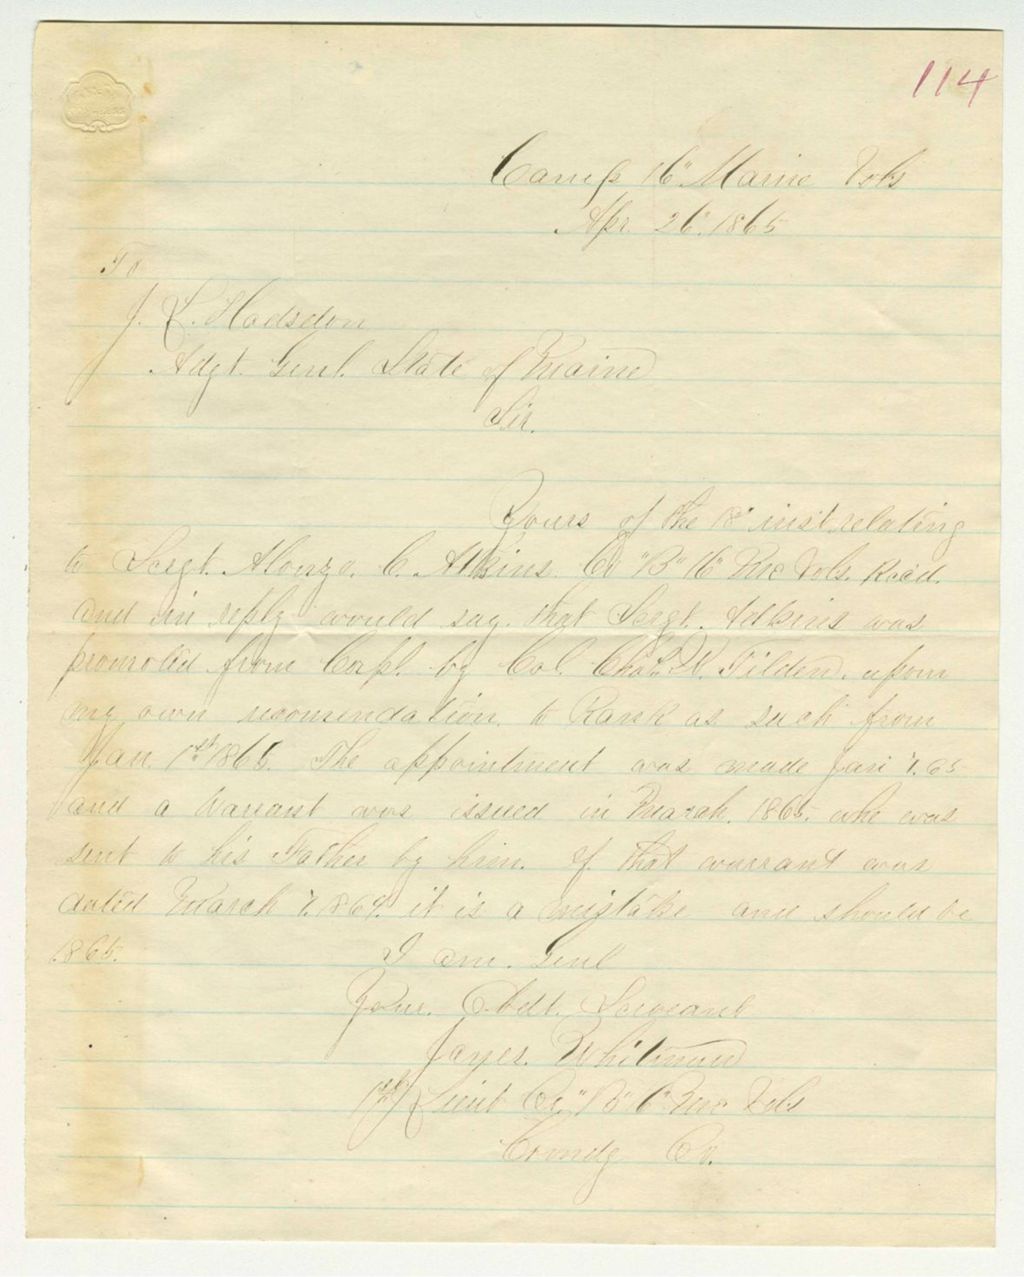 114
Camp 16" Maine Vols
Apr. 26" 1865
To
J. L. Hodsdon
Adgt. Genl. State of Maine
Sir.
Yours of the 18" inst. relating
to Sergt. Alonzo. C. Atkins. Co "B" 16" Me Vols. Recd.
and in reply would say. that Sergt. Adkins was
promoted from Corpl. by Col. Chas. W. Tilden. upon
my own recomendation to Rank as such from
Jan 1st 1865. The appointment was made Jan 1. 65
and a Warrant was issued in March. 1865. whc was
sent to his Father by him. if that warrant was
dated March 1. 1864. it is a mistake and should be
1865.
I am. Genl
Your. Obdt. Servant
Whitman
1st Lieut Co. "B" 16" Me Vols
Comdg Co.